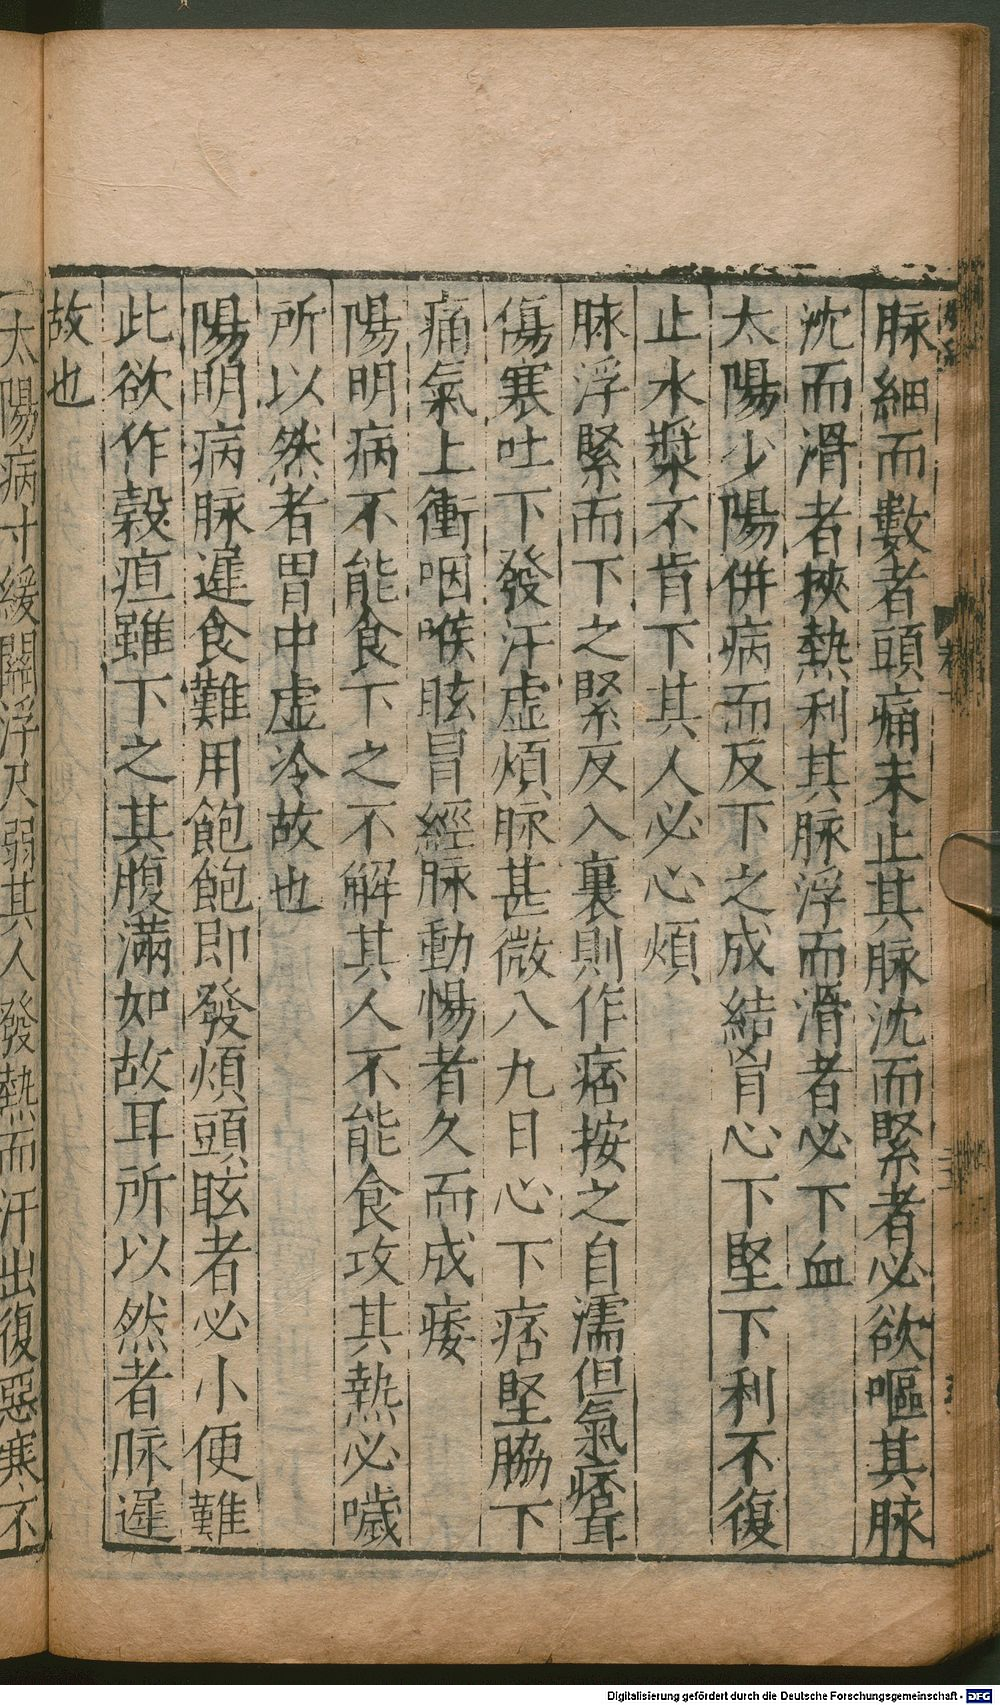 脉細而數者頭痛未止其脉沈而緊者必欲嘔其脉
沈而滑者挾熱利其脉浮而滑者必下血
太陽少陽併病而反下之成結胷心下堅下利不復
止水漿不肯下其人必心煩
脉浮緊而下之緊反入裏則作痞按之自濡但氣痞耳
傷寒吐下發汗虛煩脉甚微八九日心下痞堅脇下
痛氣上衝咽喉眩冒經脉動惕者久而成痿
陽明病不能食下之不解其人不能食攻其熱必噦
所以然者胃中虛冷故也
陽明病脉遲食難用飽飽即發煩頭眩者必小便難
此欲作榖疸雖下之其腹滿如故耳所以然者脉遲
故也
太陽病寸緩關浮尺弱其人發熱而汗出復惡寒不
Digitalisierung gefördert durch die Deutsche Forschungsgemeinschaft - DFG